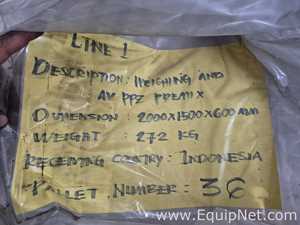 LINE 1
DESCRIPTION: WEIGHING AND
PPZ PREMIX
DIMENSION : 2000X1500X600 MM
WEIGHT : 272 KG
RECEIVING COUNTRY: INDONESIA
PALLET NUMBER : 36
www.EquipNet.com